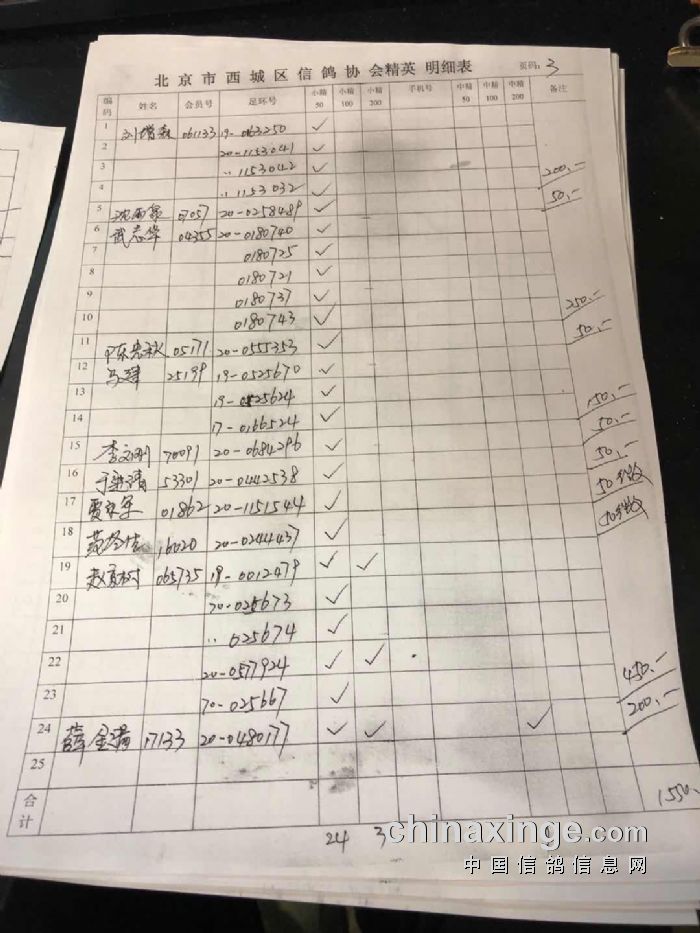 北京市西城区信鸽协会精英 明细表 页码: 3
编码 姓名 会员号 足环号 小精50 小精100 小精200 手机号 中精50 中精100 中精200 备注
1 刘增森 061133 19-063250 ✓
2 20-1153041 ✓
3 〃 1153042 ✓
4 〃 1153032 ✓ 200.-
5 07057 20-0258489 ✓ 50.-
6 武志华 04355 20-0180740 ✓
7 0180725 ✓
8 0180721 ✓
9 0180737 ✓
10 0180743 ✓ 250.-
11 05171 20-0555353 ✓ 50.-
12 25199 19-0525670 ✓
13 19-0525624 ✓
14 17-0166524 ✓ 150.-
15 李文刚 70091 20-0684296 ✓ 50.-
16 53301 20-0442538 ✓ 50.-
17 01862 20-1151544 ✓ 50
18 16020 20-0244437 ✓
19 065735 19-0012479 ✓ ✓
20 20-025673 ✓
21 〃 025674 ✓
22 20-0577924 ✓ ✓
23 20-025667 ✓ 450.-
24 薛金瑞 17133 20-0480177 ✓ ✓ ✓ 200.-
25
合计 1550.-
24 3
chinaxinge.com
中国信鸽信息网